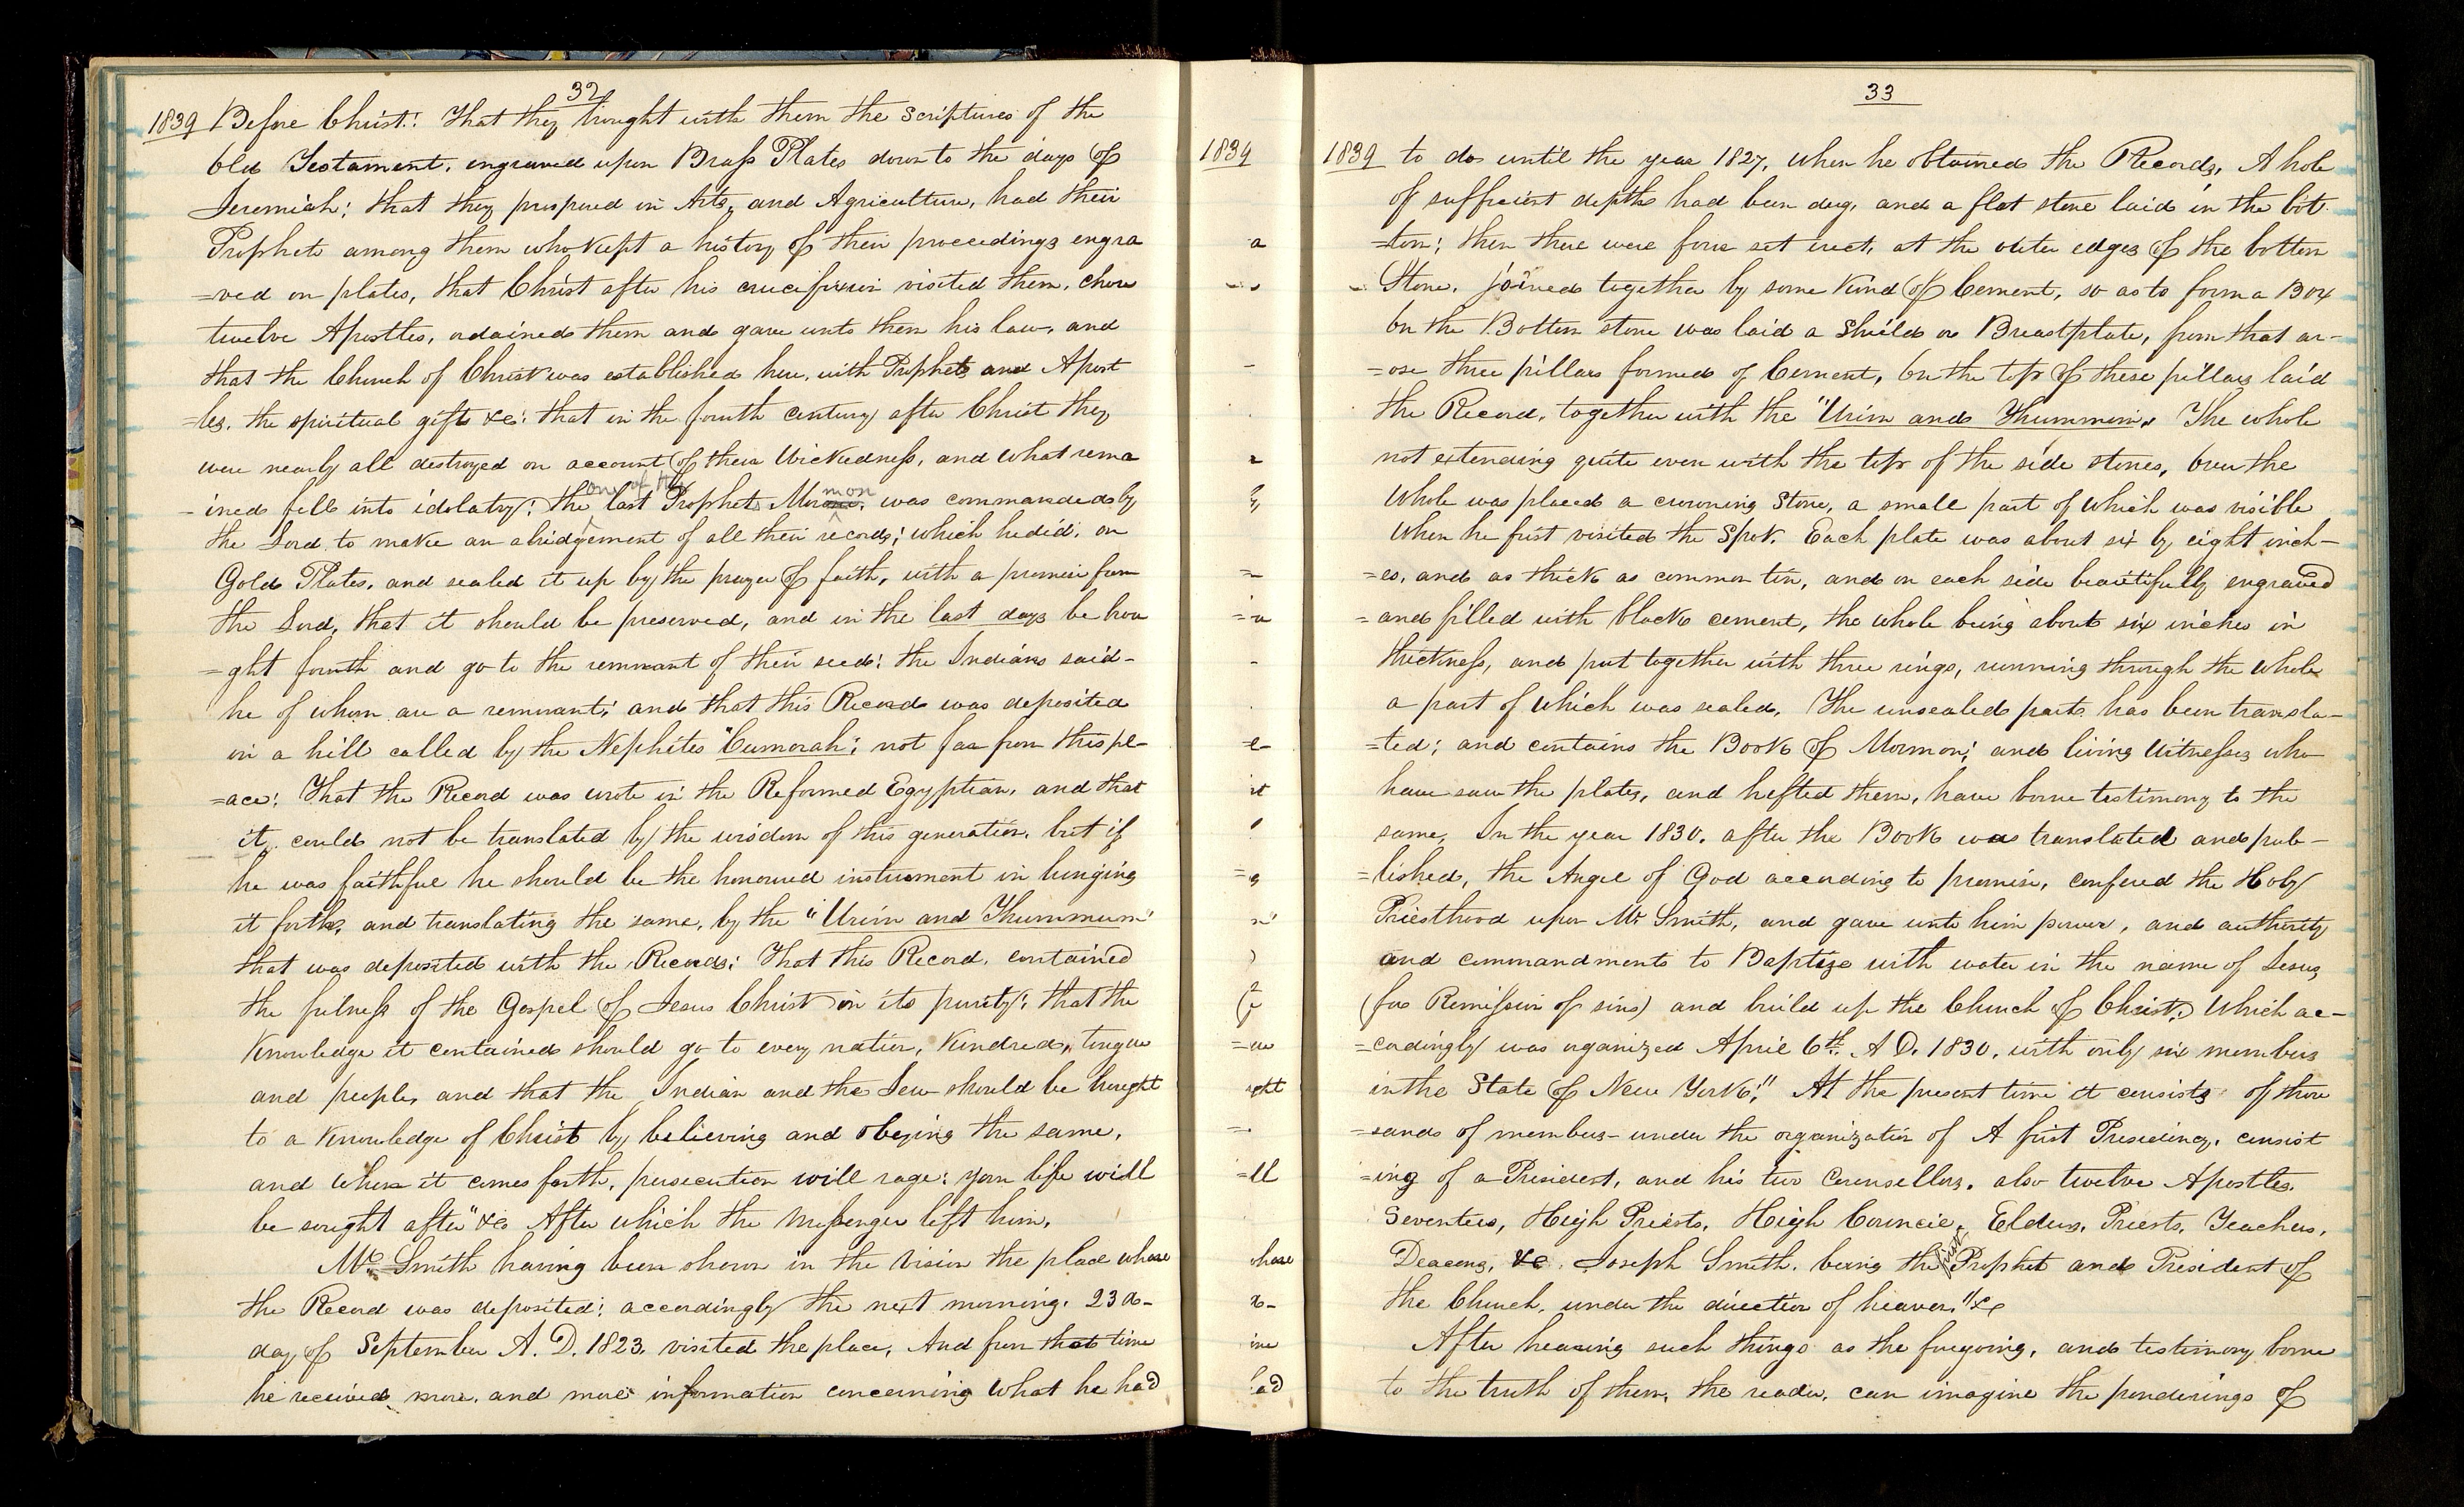 32
1839 Before Christ! That they brought with them the scriptures of the
Old Testament, engraved upon Brass Plates down to the days of
Jeremiah; that they prospered in Arts, and Agriculture, had their
Prophets among them who kept a history of their proceedings engra
=ved on plates, that Christ after his crucifixion visited them, chose
twelve Apostles, ordained them and gave unto them his law, and
that the Church of Christ was established here, with Prophets and Apost
=les, the spiritual gifts &c: that in the fourth century after Christ they
were nearly all destroyed on account of their Wickedness, and what rema
one of the mon
=ined fell into idolatry; the last Prophets Morone, was commanded by
the Lord to make an abridgement of all their records; which he did, on
Gold Plates, and sealed it up by the prayer of faith, with a promise from
the Lord, that it should be preserved, and in the last days be brou
=ght fourth and go to the remnant of their seed; the Indians said-
he of whom are a remnant; and that this Records was deposited
in a hill called by the Nephites "Cumorah; not far from this pl-
=ace; That the Record was wrote in the Reformed Egyptian, and that
it, could not be translated by the wisdom of this generation, but if
he was faithful he should be the honoured instrument in bringing
it forth, and translating the same, by the "Urim and Thummum"
that was deposited with the Records; That this Record, contained
the fulness of the Gospel of Jesus Christ in its purity; that the
Knowledge it contained should go to every nation, Kindred, tongue
and people, and that the Indian and the Jew should be brought
to a Knowledge of Christ by believing and obeying the same,
and when it comes forth, persecution will rage; your life will
be sought after" &c After which the Messenger left him,
Mr. Smith having been shown in the Vision the place whare
the Record was deposited; accordingly the next morning. 23 d-
day of September A. D. 1823, visited the place, And from that time
he received more, and more information concerning What he had
1839
a
=in
=e-
it
=g
m"
)
=ue
ught
=ll
whare
d-
ime
had
33
1839 to do, until the year 1827, when he obtained the Records, A hole
of sufficient depth had been dug, and a flat stone laid in the bot
=tom; then there were four set erect, at the outer edges of the bottom
Stone, joined together by some Kind of Cement, so as to form a Box
On the Bottom stone was laid a Shield or Breastplate, from that ar-
=ose three pillars formed of Cement, On the top of these pillars laid
the Record, together with the "Urim and Thummim," The whole
not extending quite even with the top of the side stones, Over the
Whole was placed a crowning Stone, a small part of which was visible
When he first visited the Spot. Each plate was about six by eight inch-
=es, and as thick as common tin, and on each side beautifully engraved
=and filled with black cement, the whole being about six inches in
thickness, and put together with three rings, running through the whole
a part of which was sealed, The unsealed part has been transla-
=ted; and contains the Book of Mormon; and living Witnesses who
have saw the plates, and hefted them, have borne testimony to the
same, In the year 1830. after the Book was translated and pub-
=lished, the Angel of God according to promise, confered the Holy
Priesthood upon Mr Smith, and gave unto him power, and authority
and commandments to Baptize with water in the name of Jesus,
(for Remission of sins) and build up the Church of Christ, Which ac-
=cordingly was organized April 6th. A D. 1830, with only six members
in the State of New York;" At the present time it consists of thou
=sands of members- under the organization of A first Presidency, consist
=ing of a President, and his two Counsellors, also twelve Apostles,
Seventees, High Priests, High Council, Elders, Priests, Teachers,
first
Deacons, &c. Joseph Smith, being the Prophet and President of
the Church, under the direction of heaven," &c
After hearing such things as the foregoing, and testimony borne
to the truth of them, the reader, can imagine the ponderings of